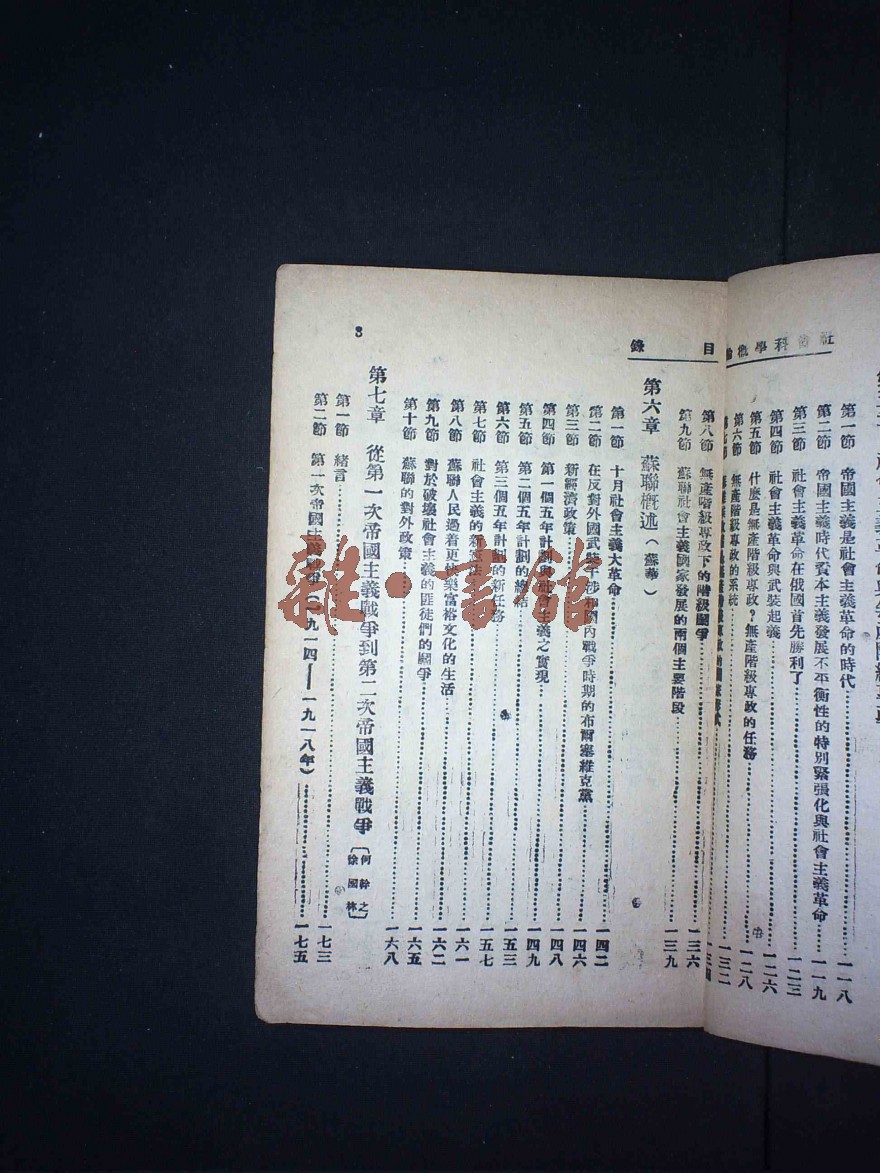 社會科學概論
第一節 帝國主義是社會主義革命的時代 一一八
第二節 帝國主義時代資本主義發展不平衡性的特別緊張化與社會主義革命 一一九
第三節 社會主義革命在俄國首先勝利了 一二三
第四節 社會主義革命與武裝起義 一二六
第五節 什麼是無產階級專政？無產階級專政的任務 一二八
第六節 無產階級專政的系統 一三二
第七節
目錄
第八節 無產階級專政下的階級鬭爭 一三六
第九節 蘇聯社會主義國家發展的兩個主要階段 一三九
第六章 蘇聯概述（蘇華）
第一節 十月社會主義大革命 一四二
第二節 在反對外國武裝干涉和國內戰爭時期的布爾塞維克黨 一四六
第三節 新經濟政策 一四八
第四節 第一個五年計劃與社會主義之實現 一四九
第五節 第二個五年計劃的總結 一五三
第六節 第三個五年計劃的新任務 一五七
第七節 社會主義的新憲法 一六一
第八節 蘇聯人民過着更快樂富裕文化的生活 一六二
第九節 對於破壞社會主義的匪徒們的鬭爭 一六五
第十節 蘇聯的對外政策 一六八
第七章 從第一次帝國主義戰爭到第二次帝國主義戰爭〔何幹之 徐國棟〕
第一節 緒言 一七三
第二節 第一次帝國主義戰爭（一九一四——一九一八年） 一七五
3
雜·書館